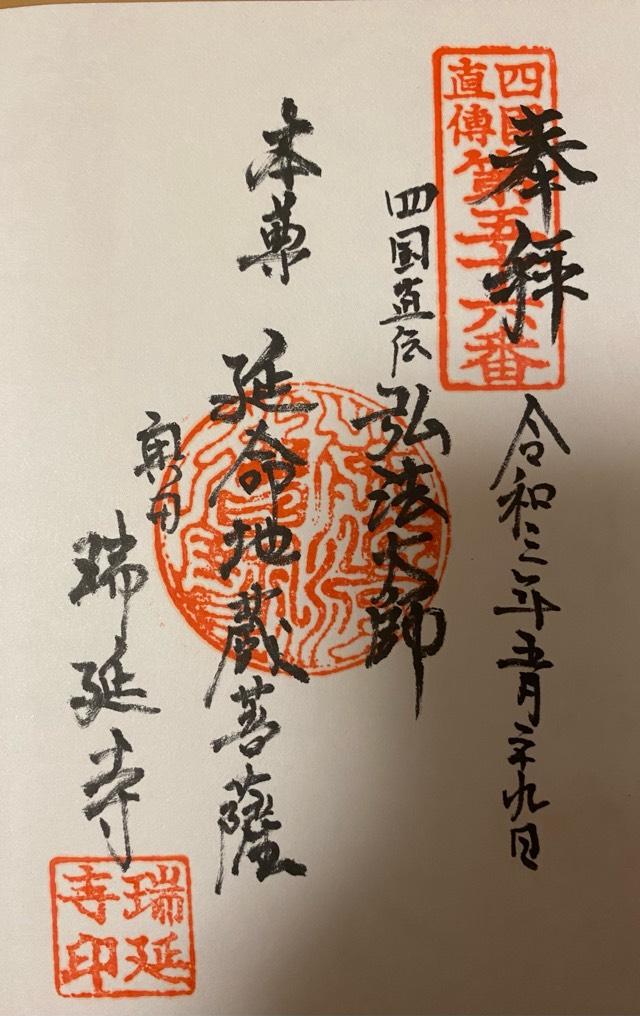 四國直傳
第五十六番
奉拝
令和三年五月二十九日
四国直伝 弘法大師
本尊 延命地蔵菩薩
瑞延寺
瑞延寺印